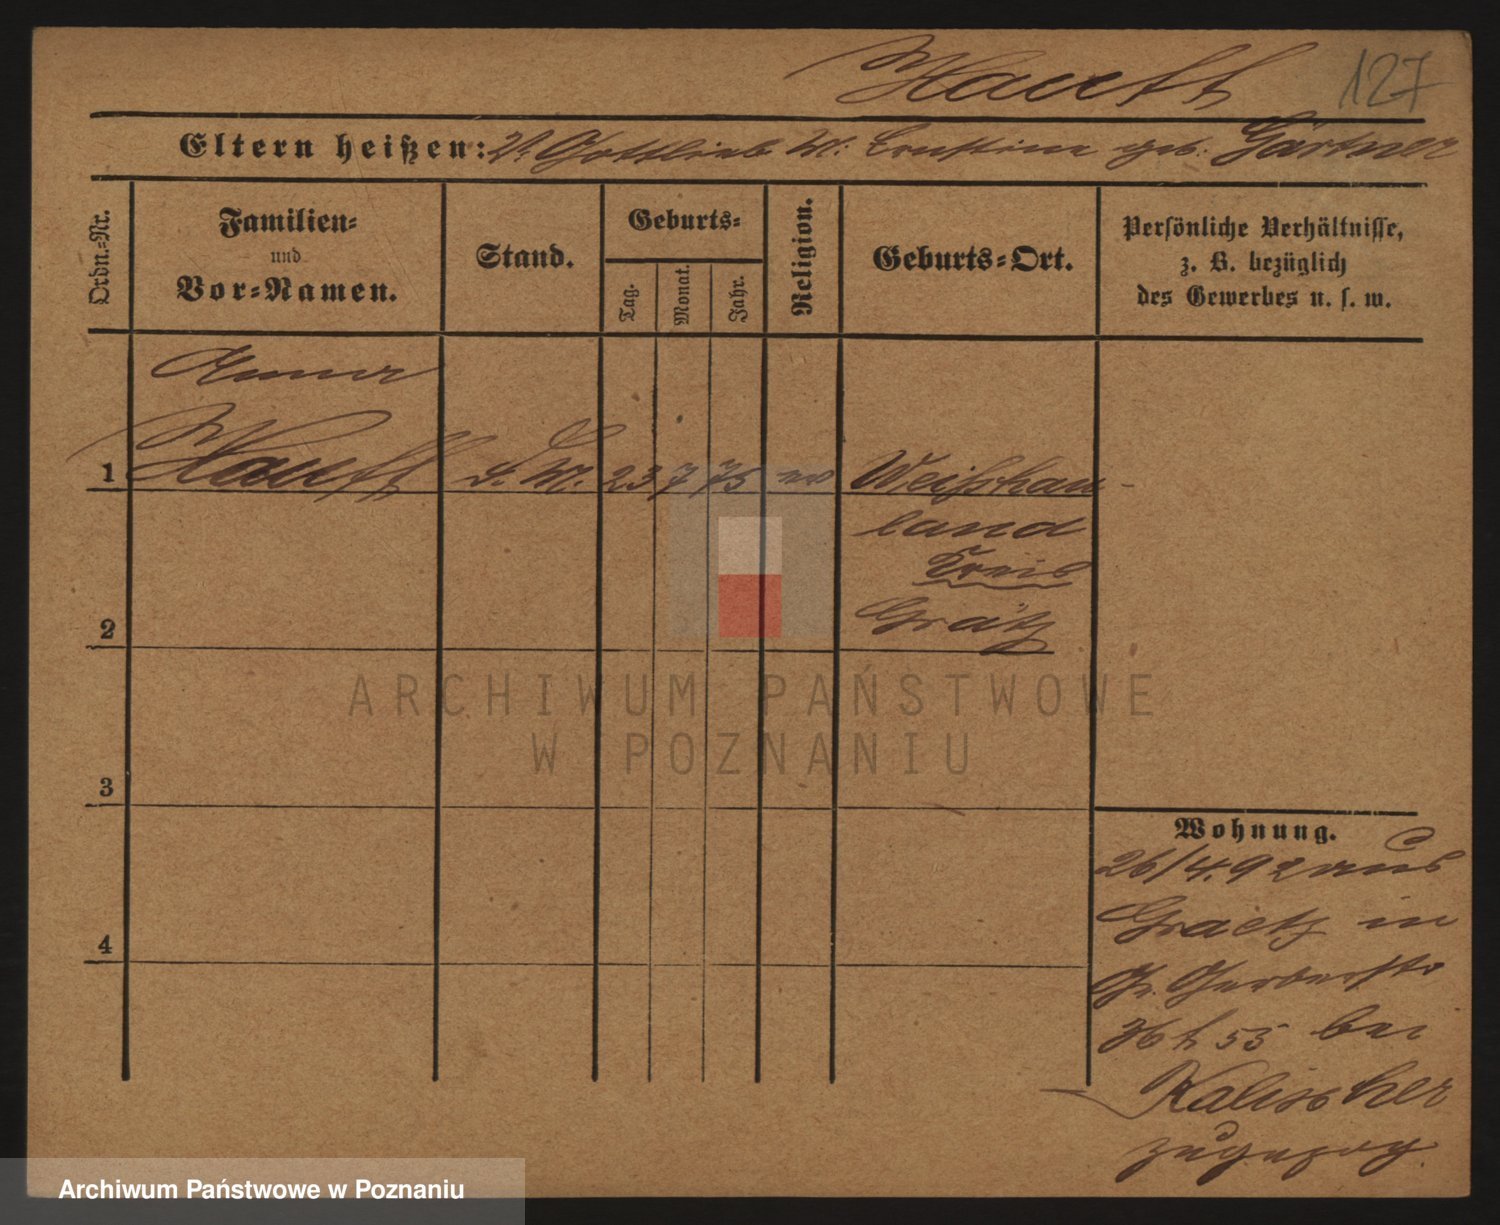 Hauff 127
Eltern heißen: V. Gottlieb M. Ernstine geb. Gärtner
Ordn.-Nr.
Familien-
und
Vor-Namen.
Stand.
Geburts-
Tag.
Monat.
Jahr.
Religion.
Geburts-Ort.
Persönliche Verhältnisse,
z. B. bezüglich
des Gewerbes u. s. w.
Anna
1 Hauff D. M. 23 7 75 ev Weißhau-
land
Kreis
2 Grätz
ARCHIWUM PAŃSTWOWE
W POZNANIU
3
Wohnung.
26/4. 92 aus
4 Graetz in
Gr. Gerberstr
55 bei
Kalischer
zugezog.
Archiwum Państwowe w Poznaniu